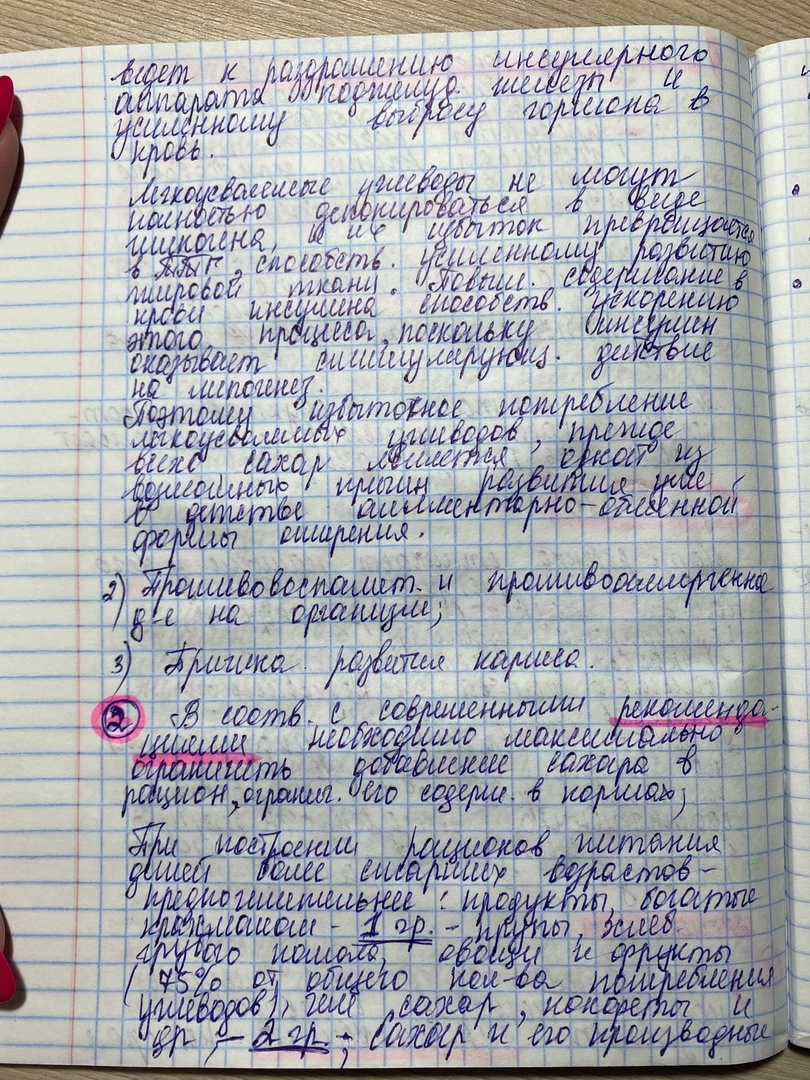 ведет к раздражению инсулярного
аппарата поджелуд. железы и
усиленному выбросу гормона в
кровь.
Легкоусвояемые углеводы не могут
полностью депонироваться в виде
гликогена, и их избыток превращается
в ТГ, способств. усиленному развитию
жировой ткани. Повыш. содержание в
крови инсулина способств. ускорению
этого процесса, поскольку инсулин
оказывает стимулирующ. действие
на липогенез.
Поэтому избыточное потребление
легкоусвояемых углеводов, прежде
всего сахар является одной из
возможных причин развития уже
в детстве алиментарно-обменной
формы ожирения.
2) Противовоспалит. и противоаллергенное
д-е на организм;
3) Причина развития кариеса.
2 В соотв. с современными рекоменда-
циями необходимо максимально
ограничить добавление сахара в
рацион, огранич. его содерж. в нормах;
При построении рационов питания
детей более старших возрастов –
предпочтительнее: продукты, богатые
крахмалом – 1 гр. – крупы, хлеб
грубого помола, овощи и фрукты
(75% от общего кол-ва потребления
углеводов), чем сахар, конфеты и
др, – 2 гр. – сахар и его производные